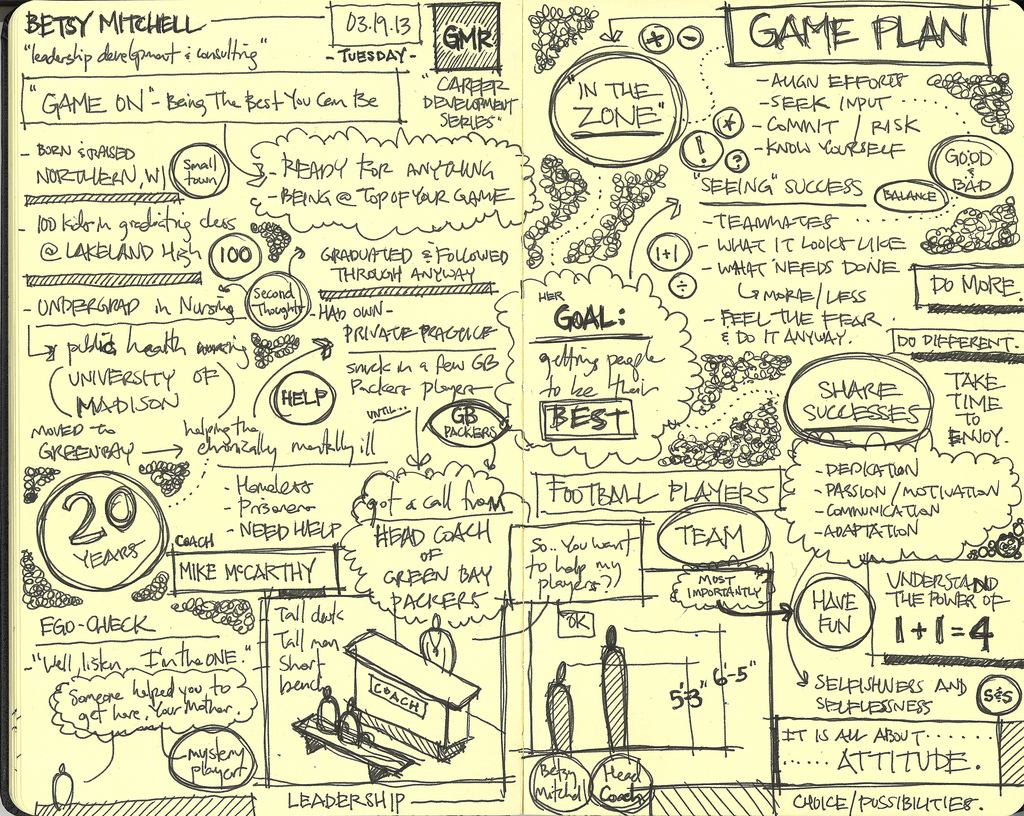 BETSY MITCHELL
"leadership development & consulting"
03.19.13
- TUESDAY -
GMR
"CAREER
DEVELOPMENT
SERIES"
"GAME ON" - Being The Best You Can Be
- BORN & RAISED
NORTHERN, WI
Small
town
- READY FOR ANYTHING
- BEING @ TOP OF YOUR GAME
- 100 kids in graduating class
@ LAKELAND High
100
GRADUATED & FOLLOWED
THROUGH ANYWAY
- UNDERGRAD in Nursing
Second
Thoughts
- HAD OWN -
PRIVATE PRACTICE
public health nursing
(UNIVERSITY OF
MADISON)
snuck in a few GB
Packers players
UNTIL...
HELP
GB
PACKERS
MOVED TO
GREENBAY
helping the
chronically mentally ill
20
YEARS
- Homeless
- Prisoners
- NEED HELP
got a call from
HEAD COACH
OF
GREEN BAY
PACKERS
COACH
MIKE McCARTHY
EGO-CHECK
- "Well, listen, I'm the ONE."
Someone helped you to
get here. Your Mother.
mystery
player
Tall desk
Tall man
Short
bench
COACH
LEADERSHIP
"IN THE
ZONE"
+
-
!
*
?
GAME PLAN
- ALIGN EFFORTS
- SEEK INPUT
- COMMIT / RISK
- KNOW YOURSELF
GOOD
&
BAD
BALANCE
"SEEING" SUCCESS
- TEAMMATES
- WHAT IT LOOKS LIKE
- WHAT NEEDS DONE
MORE/LESS
- FEEL THE FEAR
& DO IT ANYWAY.
1+1
÷
DO MORE.
DO DIFFERENT.
HER
GOAL:
getting people
to be their
BEST
SHARE
SUCCESSES
TAKE
TIME
TO
ENJOY.
- DEDICATION
- PASSION/MOTIVATION
- COMMUNICATION
- ADAPTATION
FOOTBALL PLAYERS
So.. You want
to help my
players?)
TEAM
MOST
IMPORTANTLY
HAVE
FUN
UNDERSTAND
THE POWER OF
1+1=4
OK
5'-3"
6'-5"
Betsy
Mitchell
Head
Coach
SELFISHNESS AND
SELFLESSNESS
S&S
IT IS ALL ABOUT
ATTITUDE.
CHOICE/POSSIBILITIES.